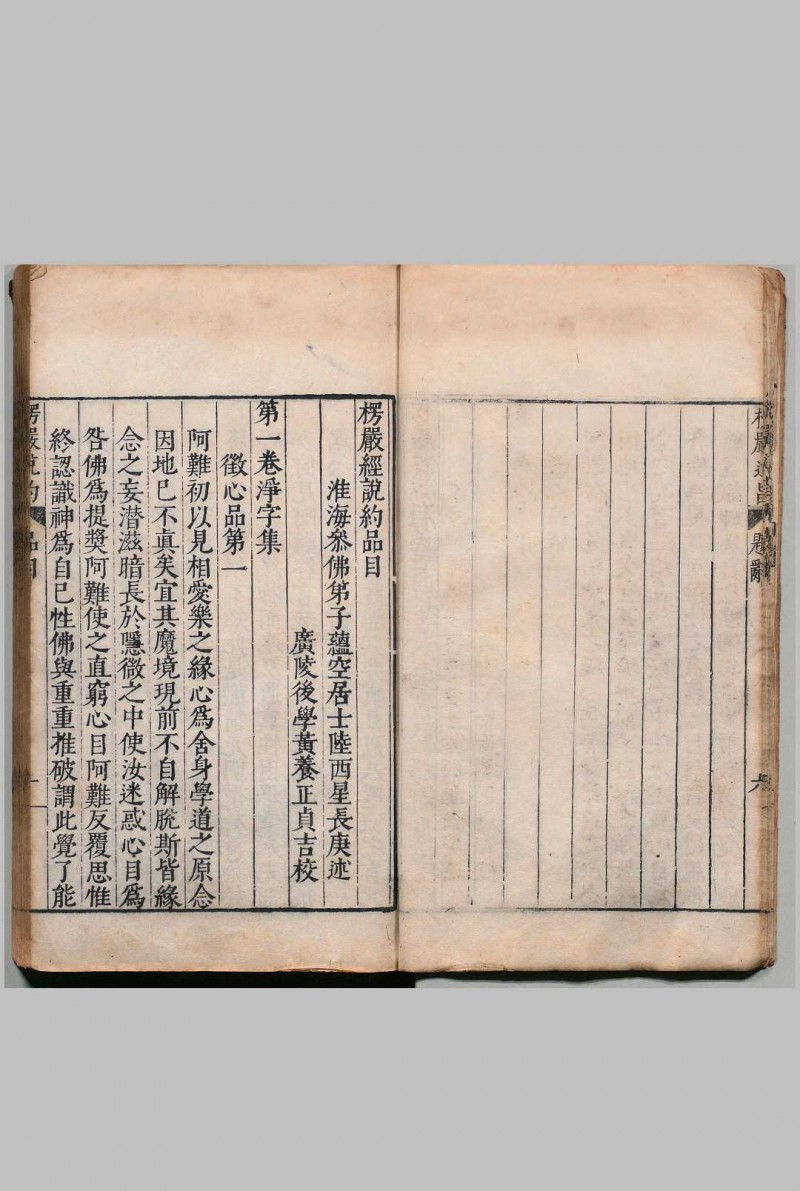 楞嚴述旨 題辭 六
楞嚴經說約品目
准海叅佛苐子蘊空居士陸西星長庚述
廣陵後學黃養正貞吉校
第一卷淨字集
徵心品第一
阿難初以見相愛樂之緣心爲舍身學道之原念
因地已不真矣宜其魔境現前不自解脫斯皆緣
念之妄潜滋暗長於隱微之中使汝迷惑心目爲
咎佛爲提獎阿難使之直窮心目阿難反覆思惟
終認識神爲自己性佛與重重推破謂此覺了能
楞嚴說約 品目 一